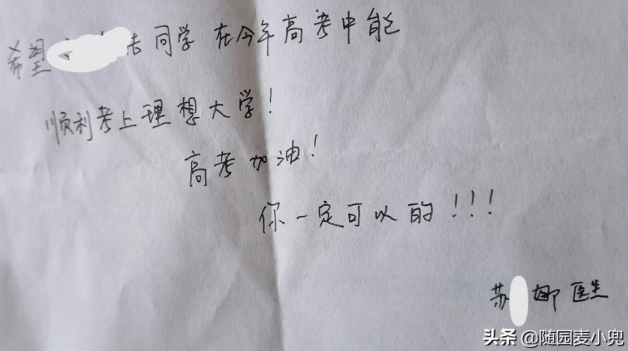 希望 同学在今年高考中能
顺利考上理想大学!
高考加油!
你一定可以的!!!
苏 娜 医生
头条 @随园麦小兜